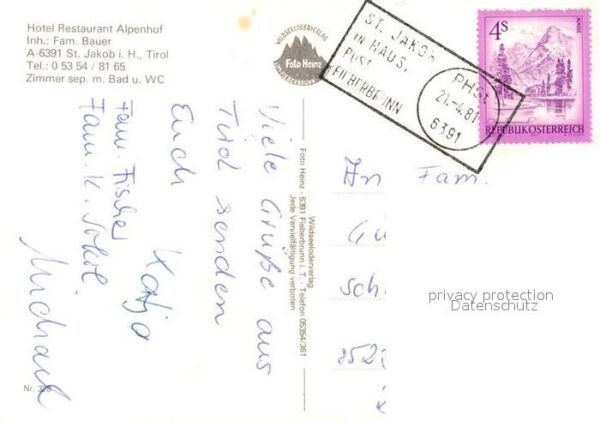 Hotel Restaurant Alpenhof
Inh.: Fam. Bauer
A-6391 St. Jakob i. H., Tirol
Tel.: 0 53 54 / 81 65
Zimmer sep. m. Bad u. WC
WILDSEELODERVERLAG
Foto Heinz
ST. JAKOB
in HAUS,
Post
FIEBERBRUNN
PHSt
21.-4.81
6391
4S
REPUBLIK ÖSTERREICH
Viele Grüße aus
Tirol senden
Euch
Katja
Fam. Fischer
Fam. K.
Michael
Wildseeloderverlag
Foto Heinz - 6391 Fieberbrunn i. T. - Telefon 05354/361
Jede Vervielfältigung verboten
An Fam.
Gü
Sch.
852
privacy protection
Datenschutz
Nr.